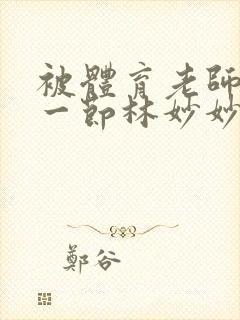 被體育老師
一節林妙妙
鄭谷